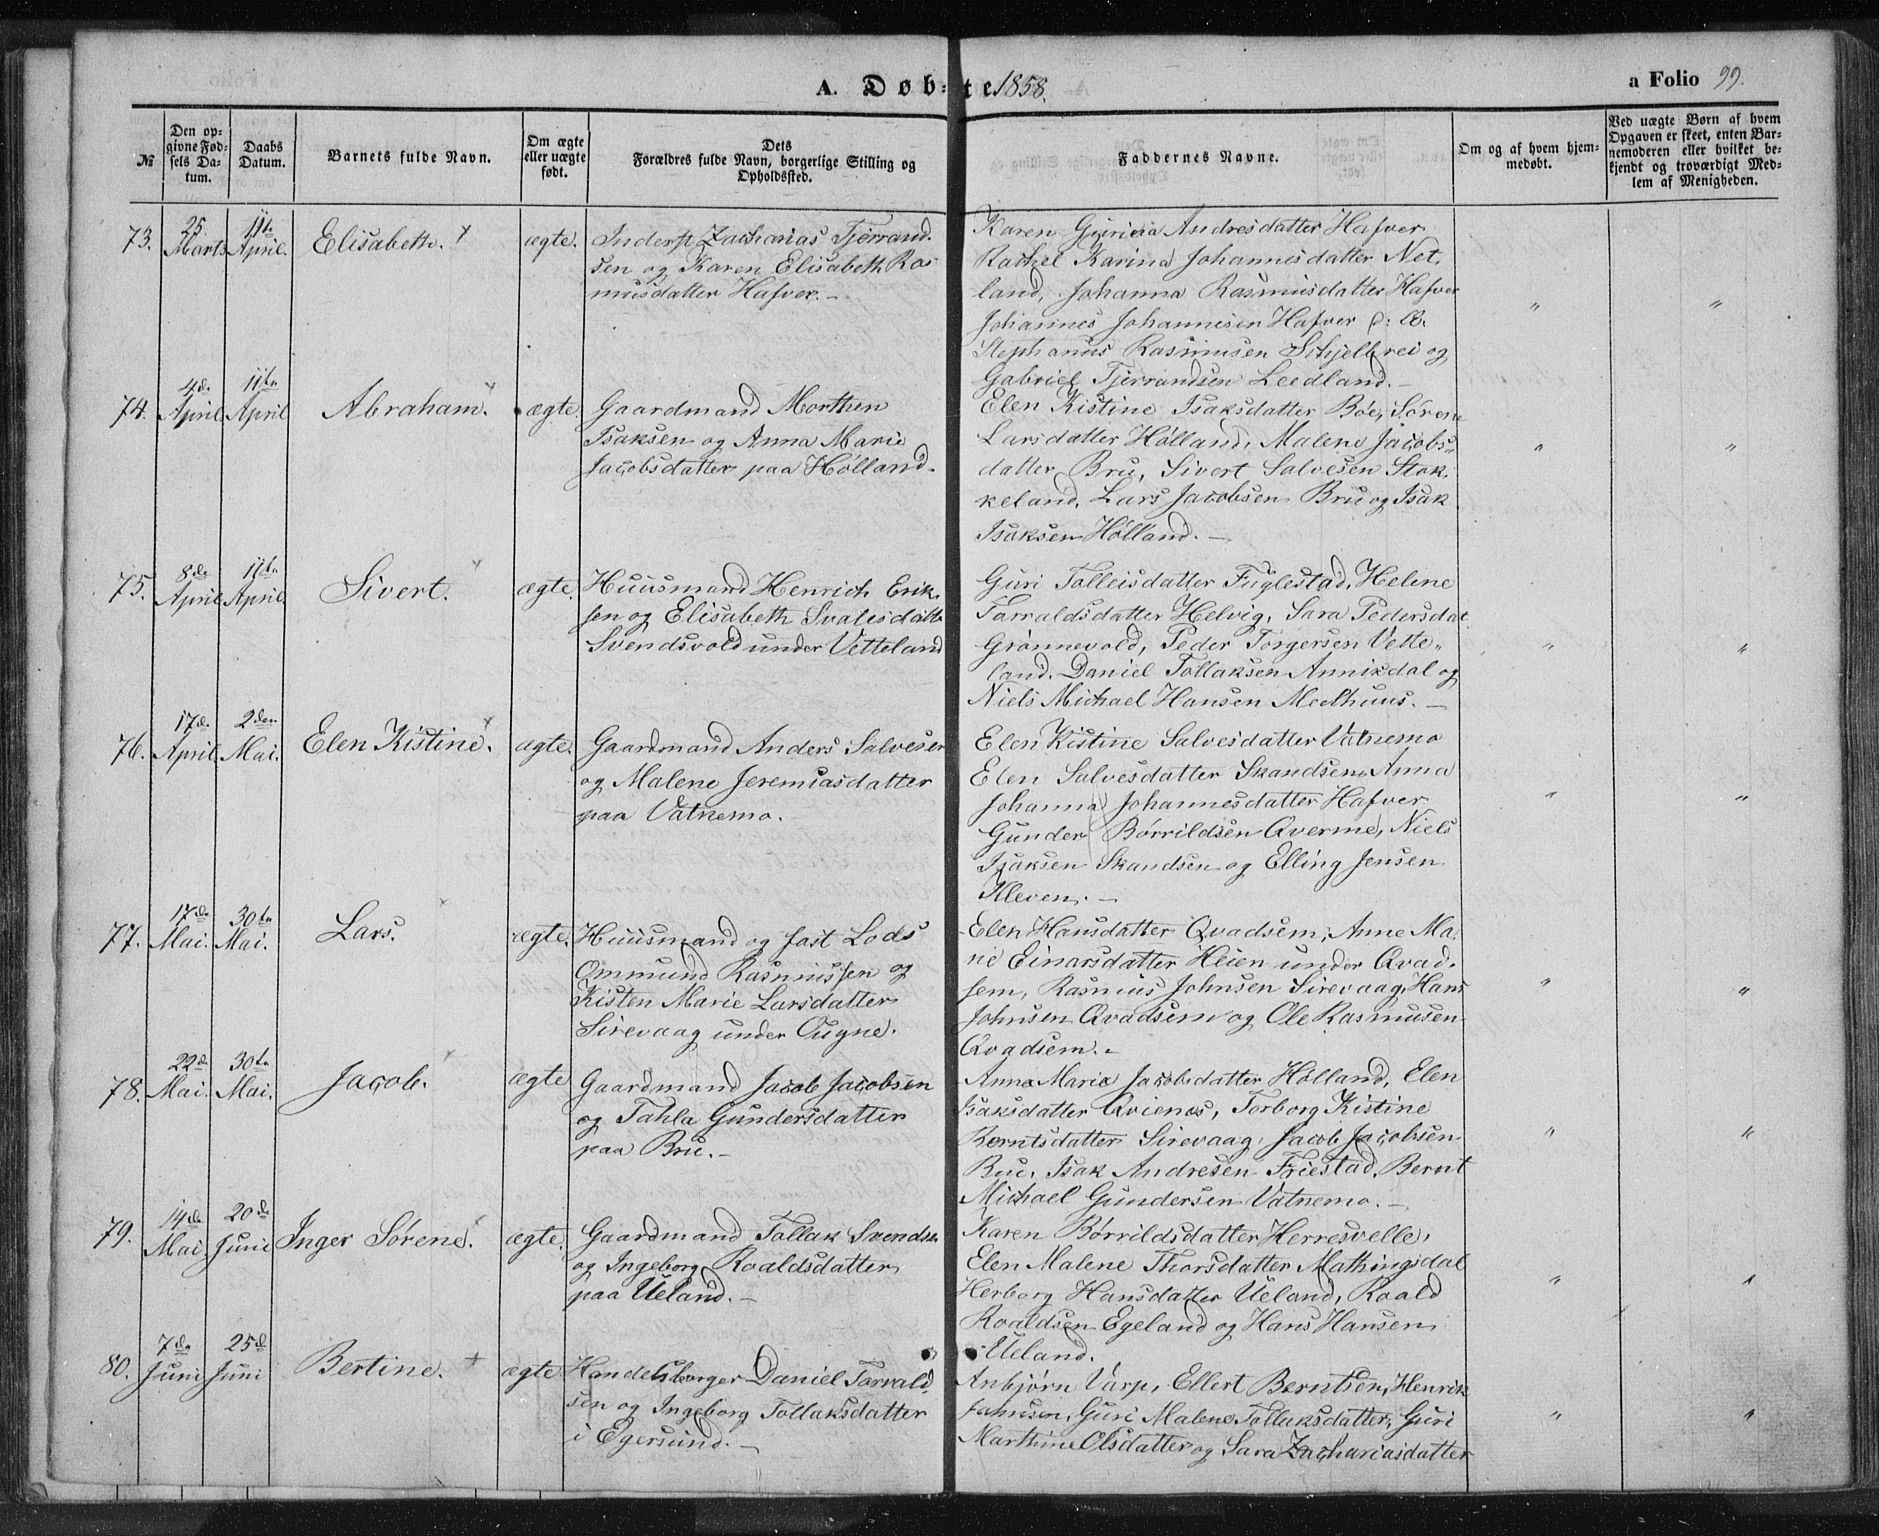 A. Døb-te 1858.
a Folio 99.
№
Den opgivne Fødsels Datum.
Daabs Datum.
Barnets fulde Navn.
Om ægte eller uægte født.
Dets Forældres fulde Navn, borgerlige Stilling og Opholdssted.
Faddernes Navne.
Om og af hvem hjemmedøbt.
Ved uægte Børn af hvem Opgaven er skeet, enten Barnemoderen eller hvilket bekjendt og troværdigt Medlem af Menigheden.
73. 25. Marts 11te April. Elisabeth. ægte.
Inderst Zacharias Tjerrand-
sen og Karen Elisabeth Ras
musdatter Hafver. -
Karen Andresdatter Hafver
Rachel Karina Johannesdatter Net,
land, Johanna Rasmusdatter Hafver
Johannes Johannesen Hafver
Stephanus Rasmusen Schjelbrei og
Gabriel Tjerrandsen Leedland. -
74. 4de April 11te April Abraham. ægte.
Gaardmand Morthen
Isaksen og Anna Marie
Jacobsdatter paa Hølland.
Elen Kistine Isaksdatter Bøe, Sørene
Larsdatter Hølland, Malene Jacobs-
datter Bru, Sivert Salvesen Stok,
keland, Lars Jacobsen Bru og Isak
Isaksen Hølland. -
75. 8de April 11te April. Sivert. ægte.
Huusmand Henrich Erik,
sen og Elisabeth Svalesdatte
Svendsvold under Vetteland
Guri Tolleisdatter Fuglestad, Helene
Tarraldsdatter Helvig, Sara Pedersdat
Grønnevold, Peder Torgersen Vette-
land, Daniel Tollaksen Annikdal og
Niels Michael Hansen Medhuus. -
76. 17de April. 2den Mai. Elen Kistine. ægte.
Gaardmand Anders Salvesen
og Malene Jeremiasdatter
paa Vatnemo.
Elen Kistine Salvesdatter Vatnemo
Elen Salvesdatter Skandsen, Anna
Johanna Johannesdatter Hafver
Gunder Børrildsen Qverme, Niels
Isaksen Skandsen og Elling Jensen
Kleven. -
77. 17de Mai. 30te Mai. Lars. ægte.
Huusmand og fast Lods
Ommund Rasmussen og
Kisten Marie Larsdatter
Sirevaag under Ougne.
Elen Hansdatter Qvadsem, Anne Ma,
rie Einarsdatter Heien under Qvad-
sem, Rasmus Johnsen Sirevaag, Hans
Johnsen Qvadsem og Ole Rasmusen
Qvadsem. -
78. 22de Mai. 30te Mai. Jacob. ægte
Gaardmand Jacob Jacobsen
og Tahla Gundersdatter
paa Bru. -
Anna Maria Jacobsdatter Hølland, Elen
Isaksdatter Qvienes, Torborg Kistine
Berntsdatter Sirevaag, Jacob Jacobsen
Bru, Isak Andresen Friestad, Bernt
Michael Gundersen Vatnemo. -
79. 14de Mai. 20de Juni Inger Sørene. ægte.
Gaardmand Tollak Svendse
og Ingeborg Roaldsdatter
paa Ueland. -
Karen Børrildsdatter Herresvelle,
Elen Malene Thorsdatter Mathingsdal
Herborg Hansdatter Ueland, Roald
Roaldsen Egeland og Hans Hansen
Ueland.
80. 7de Juni 25de Juni Bertine. ægte
Handelsborger Daniel Torvald,
sen og Ingeborg Tollaksdatter
i Egersund. -
Anbjørn Varp, Ellert Berntsen, Henrik
Johnsen, Guri Malene Tollaksdatter, Guri
Marthine Olsdatter og Sara Zachariasdatter